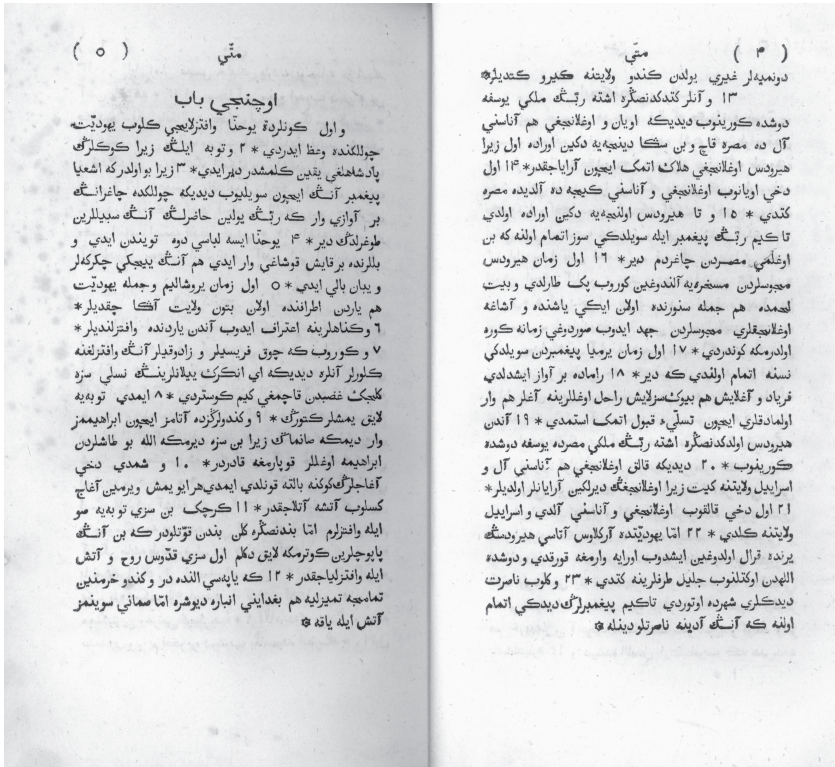 ( ۴ ) متّي
دونميه‌لر غيري يولدن كندو ولايتنه كيرو كتديلر *
١٣ و آنلر كتدكدنصكره اشته ربّڭ ملكي يوسفه
دوشده كورينوب ديديكه اويان و اوغلانجغي هم آناسني
آل ده مصره قاچ و بن سڭا دينجه‌يه دكين اوراده اول زيرا
هيرودس اوغلانجغي هلاك اتمك ايچون آراياجقدر * ١۴ اول
دخي اويانوب اوغلانجغي و آناسني كيجه ده آلديده مصره
كتدي * ١٥ و تا هيرودس اولنجه‌يه دكين اوراده اولدي
تاكيم ربّڭ پيغمبر ايله سويلدكي سوز اتمام اولنه كه بن
اوغلمي مصردن چاغردم دير * ١٦ اول زمان هيرودس
مجوسلردن مسخره‌يه آلندوغين كوروب پك طارلدي و بيت
لحمده هم جمله سنورنده اولان ايكي ياشنده و آشاغه
اوغلانجقلري مجوسلردن جهد ايدوب صوردوغي زمانه كوره
اولدرمكه كوندردي * ١٧ اول زمان يرميا پيغمبردن سويلدكي
نسنه اتمام اولندي كه دير * ١٨ راماده بر آواز ايشدلدي
فرياد و آغلايش هم بيوك سزلايش راحل اوغللرينه آغلر هم وار
اولمادقلري ايچون تسلّيء قبول اتمك استمدي * ١٩ آندن
هيرودس اولدكدنصكره اشته ربّڭ ملكي مصرده يوسفه دوشده
كورينوب * ٢٠ ديديكه قالق اوغلانجغي هم آناسني آل و
اسراييل ولايتنه كيت زيرا اوغلانجغڭ ديرلكين آرايانلر اولديلر *
٢١ اول دخي قالقوب اوغلانجغي و آناسني آلدي و اسراييل
ولايتنه كلدي * ٢٢ امّا يهوديّتده آركلاوس آتاسي هيرودسڭ
يرنده قرال اولدوغين ايشدوب اورايه وارمغه قورقدي و دوشده
اللهدن اوكتلنوب جليل طرفلرينه كتدي * ٢٣ و كلوب ناصرت
ديدكلري شهرده اوتوردي تاكيم پيغمبرلرڭ ديدكي اتمام
اولنه كه آنڭ آدينه ناصرتلو دينله *
( ٥ ) متّي
اوچنجي باب
و اول كونلرده يوحنّا وافتزلايجي كلوب يهوديّتڭ
چوللكنده وعظ ايدردي * ٢ و توبه ايلڭ زيرا كوكلرڭ
پادشاهلغي يقين كلمشدر ديرايدي * ٣ زيرا بو اولدر كه اشعيا
پيغمبر آنڭ ايچون سويليوب ديديكه چوللكده چاغرانڭ
بر آوازي وار كه ربّڭ يولين حاضرلڭ آنڭ سبيللرين
طوغرلدڭ دير * ۴ يوحنّا ايسه لباسي دوه تويندن ايدي و
بللرنده بر قايش قوشاغي وار ايدي هم آنڭ ييجكي چكركه‌لر
و يبان بالي ايدي * ٥ اول زمان يروشاليم و جمله يهوديّت
هم ياردن اطرافنده اولان بتون ولايت آڭا چقديلر *
٦ و كناهلرينه اعتراف ايدوب آندن ياردنده وافتزلنديلر *
٧ و كوروب كه چوق فريسيلر و زادوقيلر آنڭ وافتزلغنه
كلورلر آنلره ديديكه اي انكرك ييلانلرينڭ نسلي سزه
كليجك غضبدن قاچمغي كيم كوستردي * ٨ ايمدي توبه‌يه
لايق يمشلر كتورڭ * ٩ و كندولركزده آتامز ايچون ابراهيممز
وار ديمكه صانماڭ زيرا بن سزه ديرمكه الله بو طاشلردن
ابراهيمه اوغللر قوپارمغه قادردر * ١٠ و شمدي دخي
آغاجلرڭ كوكنه بالته قونلدي ايمدي هر ايو يمش ويرمين آغاج
كسلوب آتشه آتلاجقدر * ١١ كرچك بن سزي توبه‌يه صو
ايله وافتزلرم امّا بندنصكره كلن بندن قوّتلودر كه بن آنڭ
پاپوچلرين كوترمكه لايق دكلم اول سزي قدّوس روح و آتش
ايله وافتزلياجقدر * ١٢ كه ياپه‌سي النده در و كندو خرمنين
تماميجه تميزليه هم بغدايني انباره ديوشره امّا صماني سوينمز
آتش ايله ياقه *